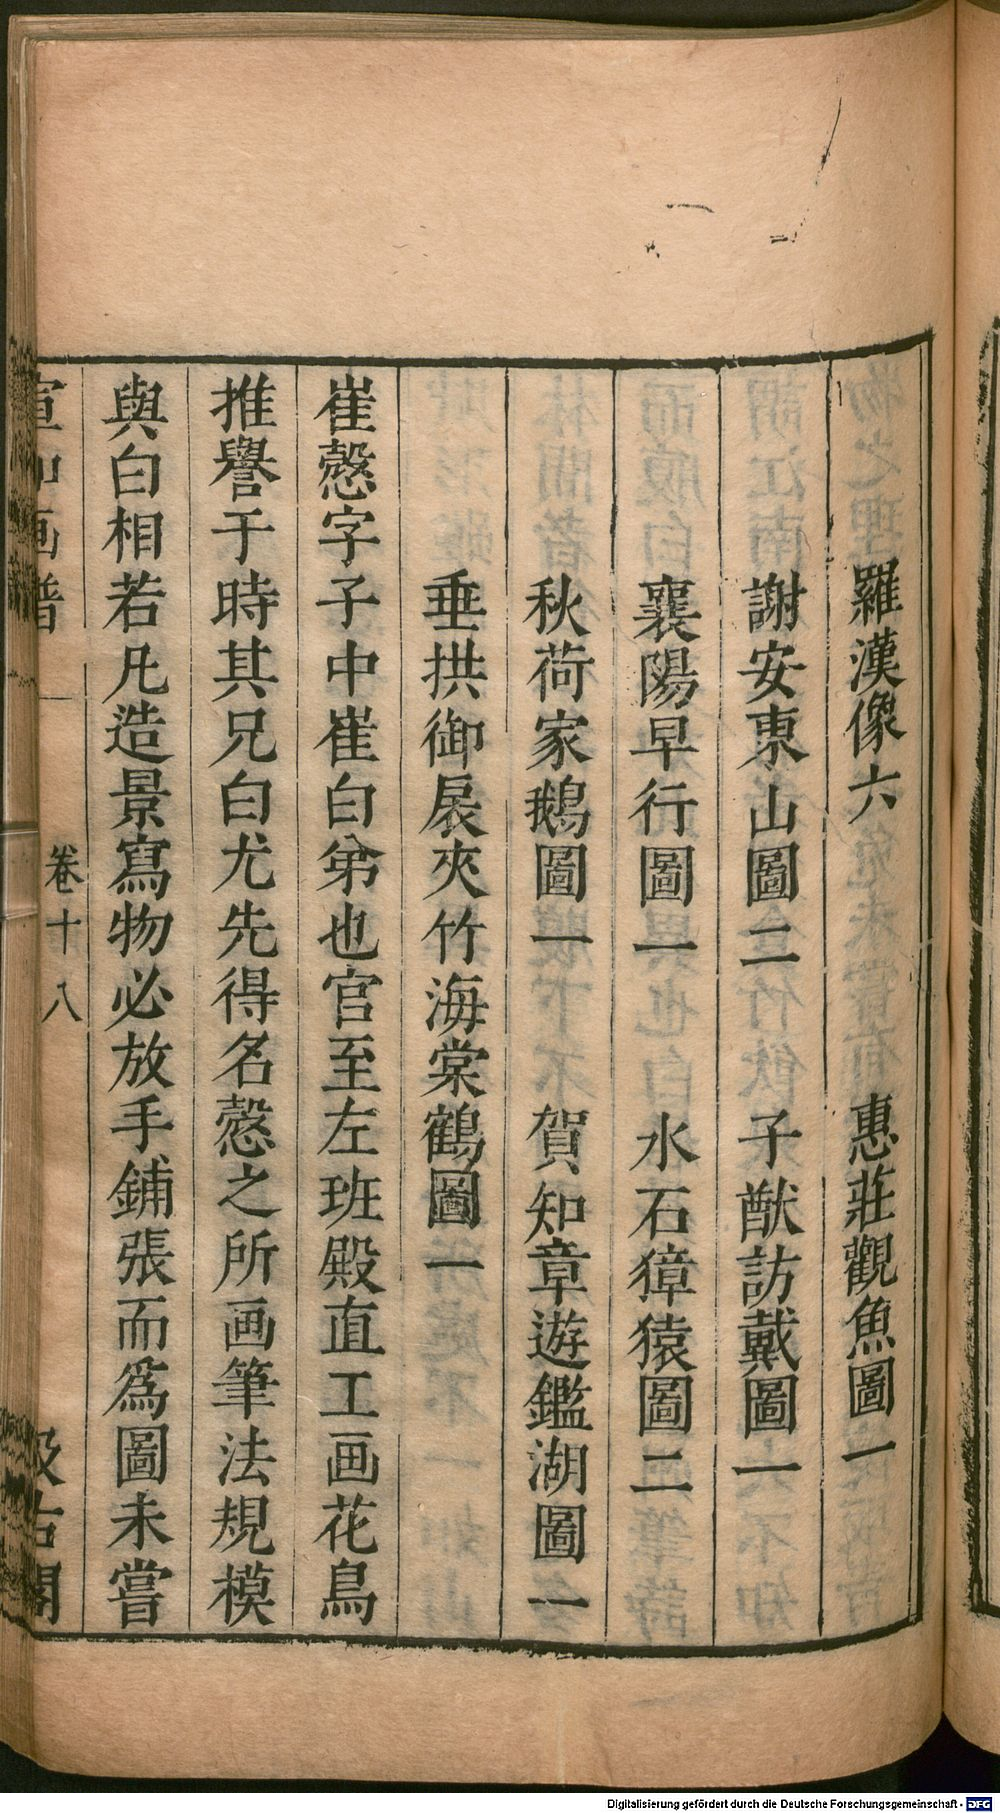 羅漢像六　惠莊觀魚圖一
謝安東山圖二　子猷訪戴圖一
襄陽早行圖一　水石獐猿圖二
秋荷家鵝圖一　賀知章遊鑑湖圖一
垂拱御扆夾竹海棠鶴圖一
崔慤字子中崔白弟也官至左班殿直工画花鳥
推譽于時其兄白尤先得名慤之所画筆法規模
與白相若凡造景寫物必放手鋪張而爲圖未嘗
宣和画譜　卷十八　汲古閣
Digitalisierung gefördert durch die Deutsche Forschungsgemeinschaft - DFG